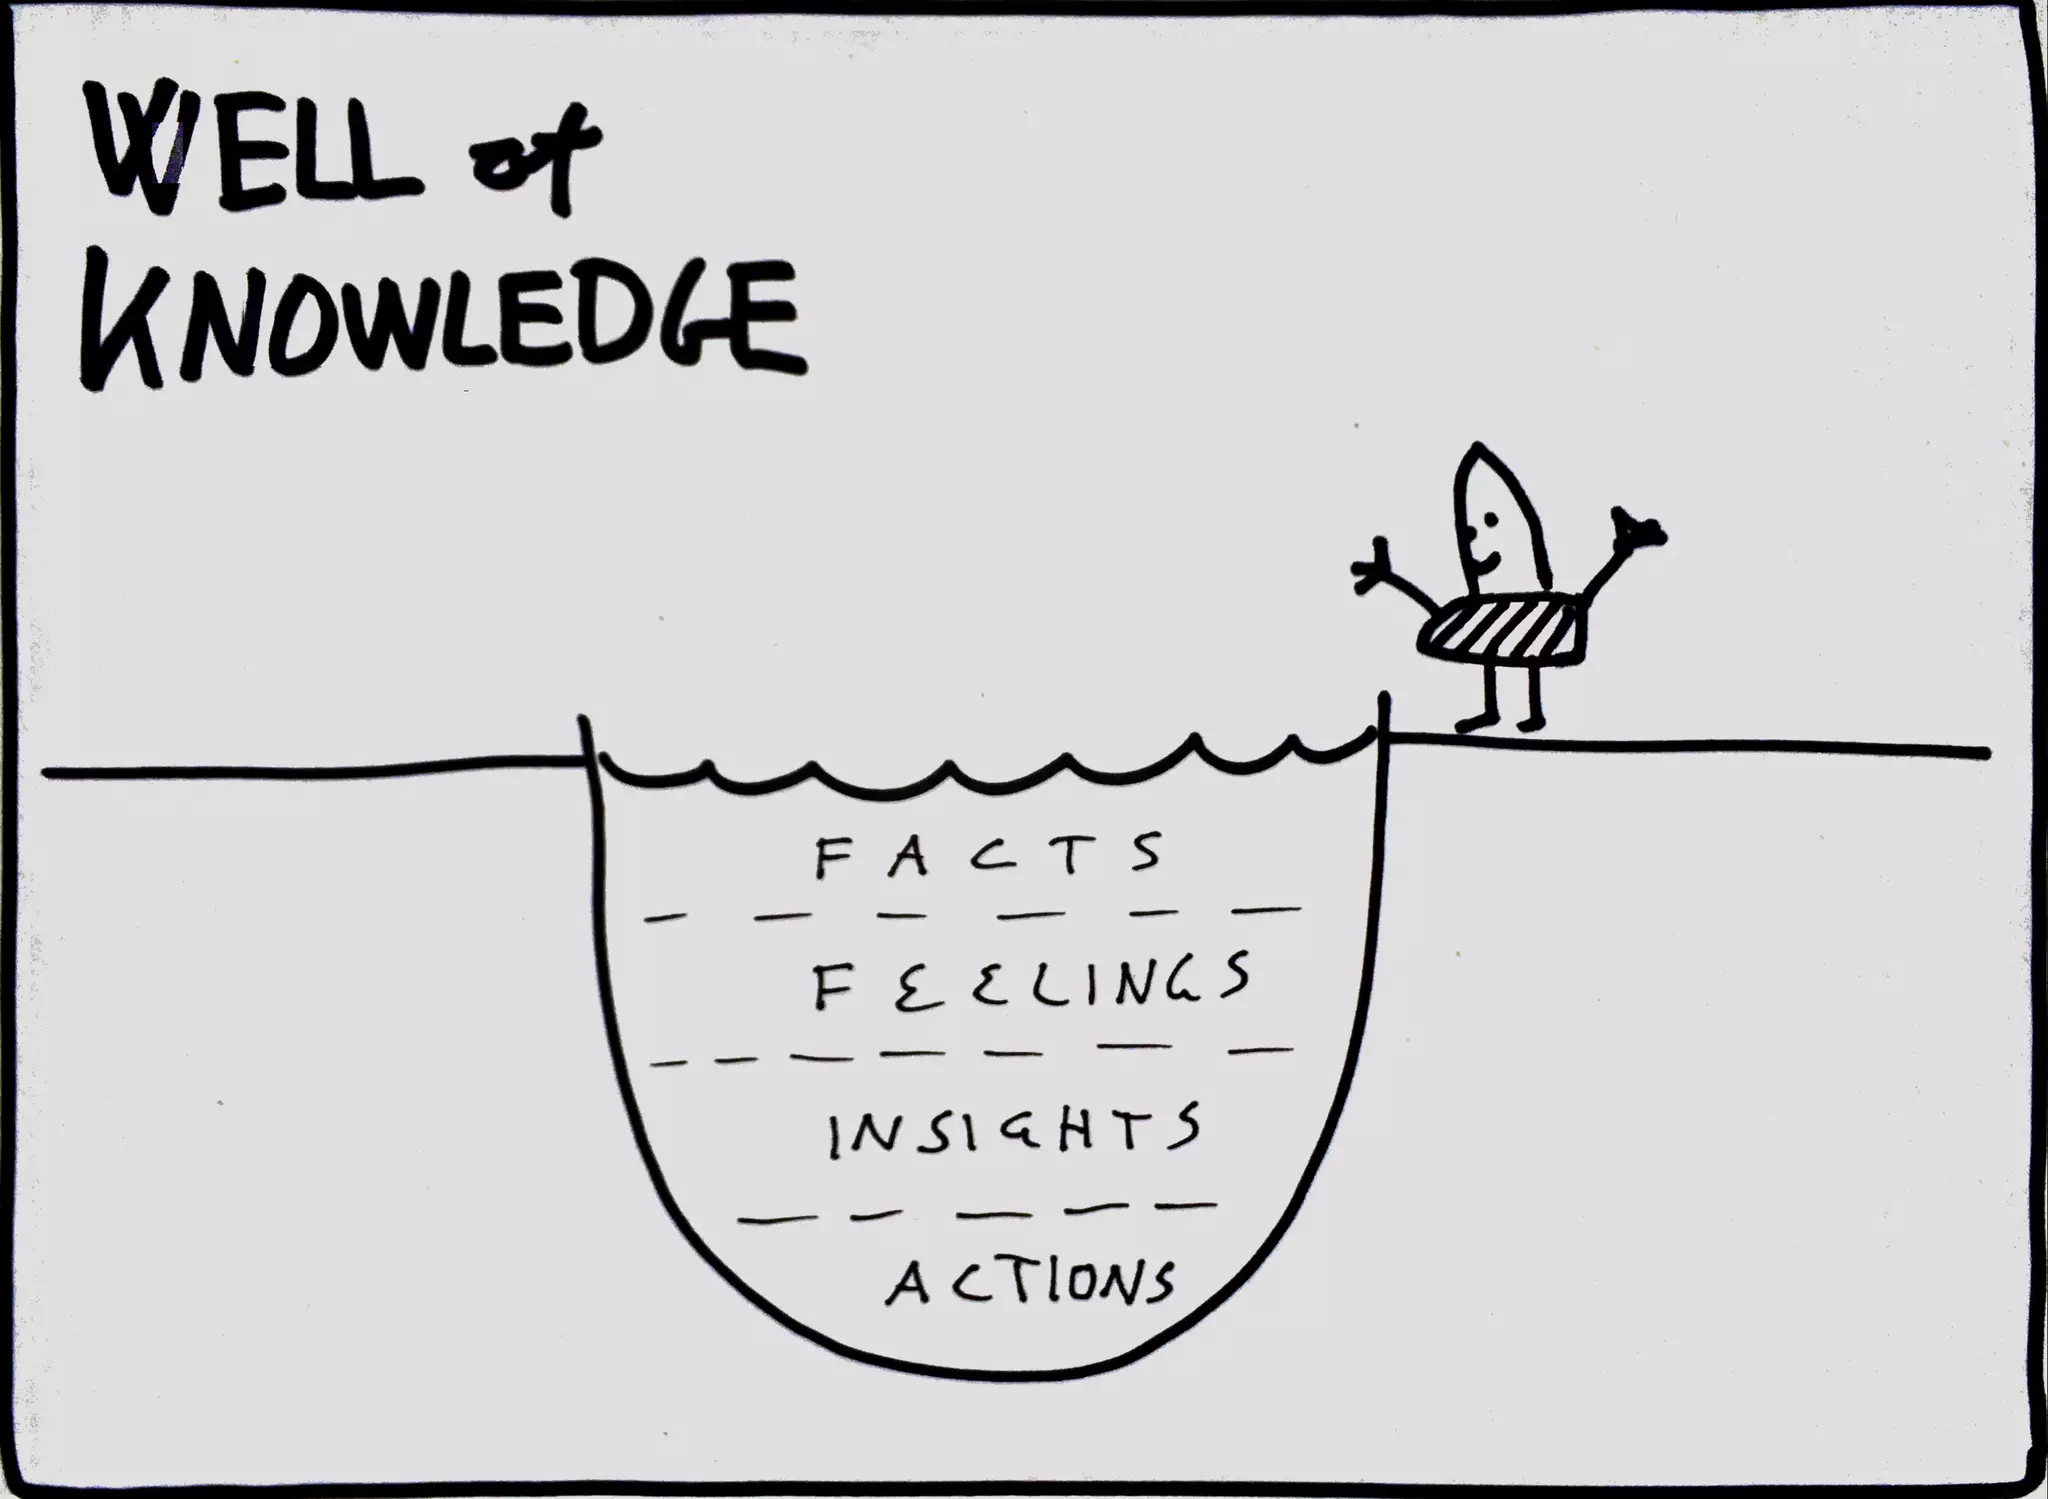 WELL of
KNOWLEDGE
FACTS
FEELINGS
INSIGHTS
ACTIONS